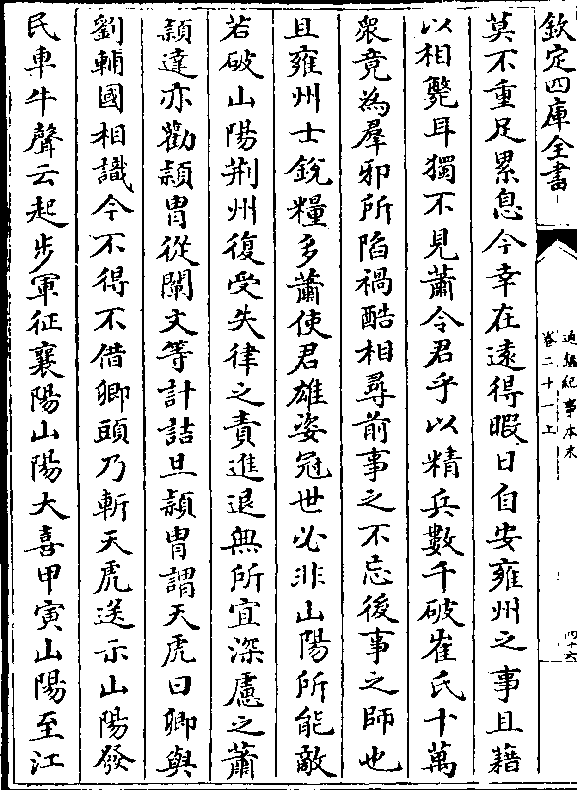 欽定四庫全書
通鑑紀事本末
卷二十一上
四十六
莫不重足累息今幸在遠得暇日自安雍州之事且藉
以相斃耳獨不見蕭令君乎以精兵數千破崔氏十萬
衆竟為羣邪所陷禍酷相尋前事之不忘後事之師也
且雍州士銳糧多蕭使君雄姿冠世必非山陽所能敵
若破山陽荆州復受失律之責進退無所宜深慮之蕭
頴達亦勸頴胄從闡文等計詰旦頴胄謂天虎曰卿與
劉輔國相識今不得不借卿頭乃斬天虎送示山陽發
民車牛聲云起步軍征襄陽山陽大喜甲寅山陽至江